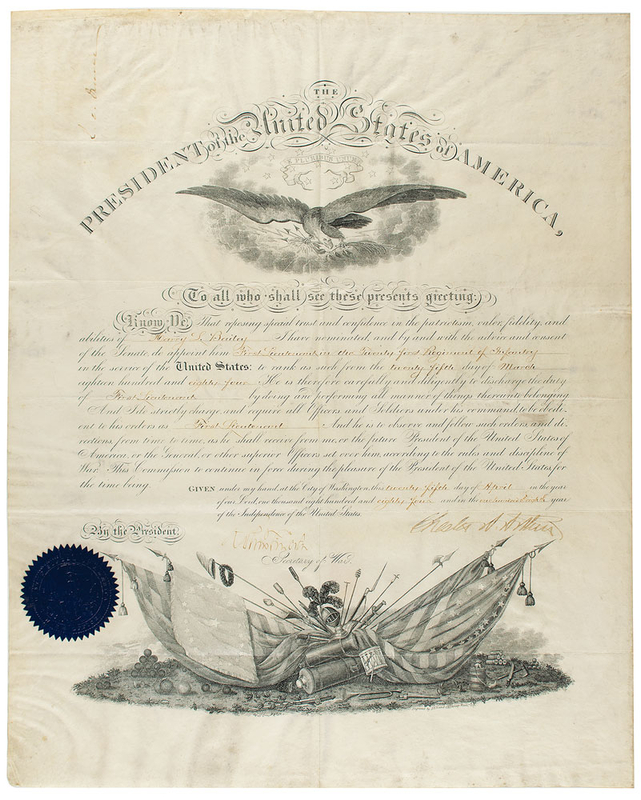 THE
PRESIDENT of the United States of AMERICA,
E PLURIBUS UNUM
To all who shall see these presents greeting:
Know Ye, That reposing special trust and confidence in the patriotism, valor, fidelity, and
abilities of Harry L. Bailey I have nominated, and by and with the advice and consent
of the Senate, do appoint him First Lieutenant in the Twenty first Regiment of Infantry
in the service of the United States: to rank as such from the twenty fifth day of March
eighteen hundred and eighty four. He is therefore carefully and diligently to discharge the duty
of First Lieutenant by doing and performing all manner of things thereunto belonging.
And I do strictly charge, and require all Officers and Soldiers under his command, to be obedi-
ent to his orders as First Lieutenant And he is to observe and follow such orders, and di-
rections from time to time, as he shall receive from me, or the future President of the United States of
America, or the General, or other superior Officers set over him, according to the rules and discipline of
War. This Commission to continue in force during the pleasure of the President of the United States, for
the time being.
GIVEN under my hand, at the City of Washington, this twenty fifth day of April in the year
of our Lord, one thousand eight hundred and eighty four and in the one hundred and eighth year
of the Independence of the United States.
By the President,
Chester A. Arthur
Secretary of War.